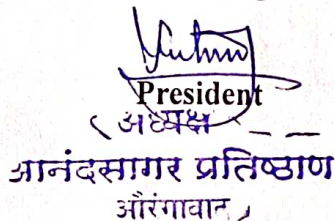 President
अध्यक्ष
आनंदसागर प्रतिष्ठाण
औरंगाबाद